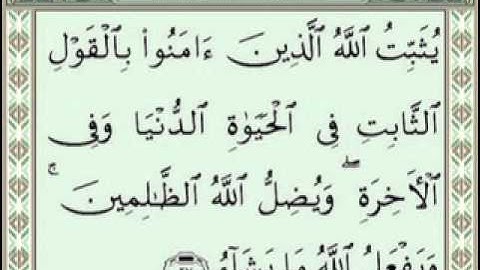 يُثَبِّتُ ٱللَّهُ ٱلَّذِينَ ءَامَنُوا۟ بِٱلْقَوْلِ
ٱلثَّابِتِ فِى ٱلْحَيَوٰةِ ٱلدُّنْيَا وَفِى
ٱلْـَٔاخِرَةِ ۖ وَيُضِلُّ ٱللَّهُ ٱلظَّـٰلِمِينَ ۚ
وَيَفْعَلُ ٱللَّهُ مَا يَشَآءُ